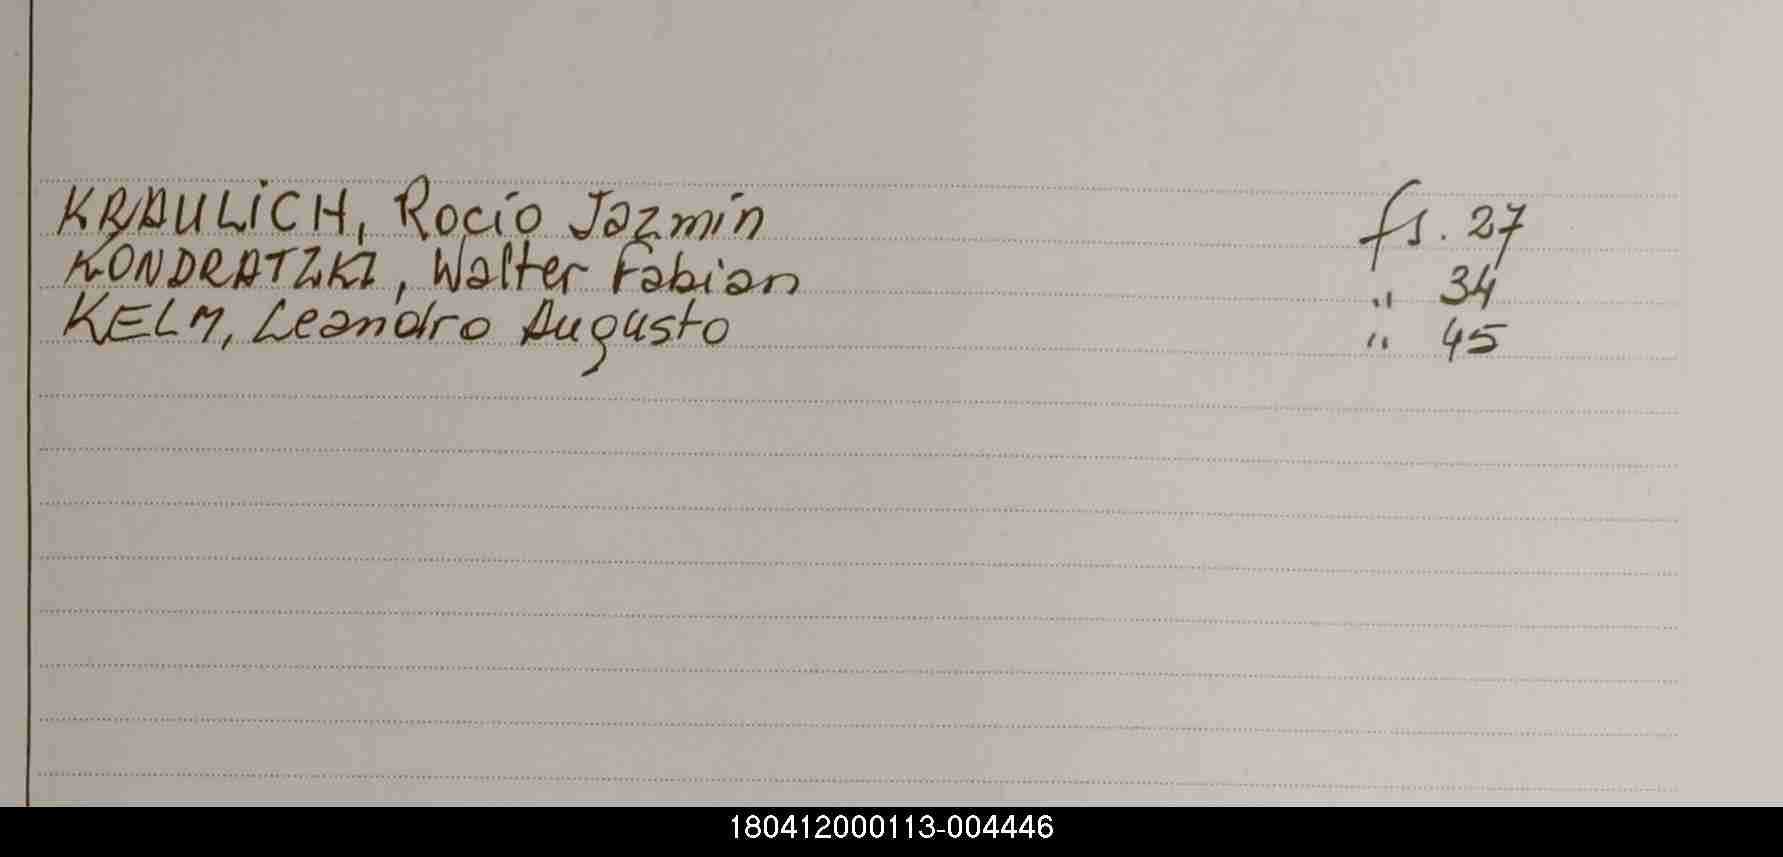 KRAULICH, Rocío Jazmín fs. 27
KONDRATZKI, Walter Fabian " 34
KELM, Leandro Augusto " 45
180412000113-004446